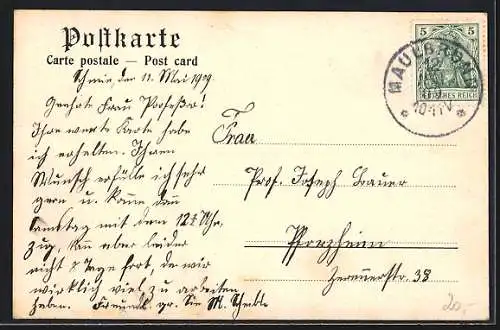 Postkarte
Carte postale — Post card
Schmie den 11. Mai 1909
Geehrte Frau Profeßor!
Ihre werte Karte habe
ich erhalten. Ihren
Wunsch erfülle ich sehr
gern u. komme den
Samstag mit dem 12½ Uhr
Zug, kann aber leider
nicht 8 Tage fort, da wir
wirklich viel zu arbeiten
haben. Freundl. gr. Sie M.
Frau
Prof. Joseph Bauer
Pforzheim
Zerennerstr. 38
5 5
DEUTSCHES REICH
MAULBRONN
10-11V
20,-